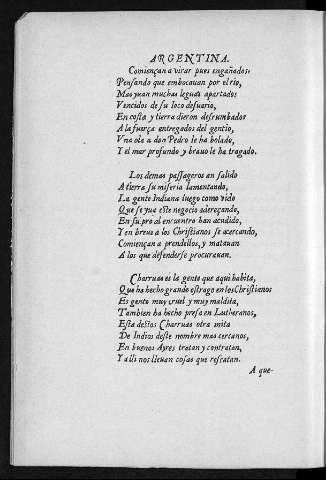 ARGENTINA.
Comiençan a virar pues engañados
Pensando que embocauan por el rio,
Mas yuan muchas leguas apartados
Vencidos de su loco desuario,
En costa y tierra dieron derrumbados
A la fuerça entregados del gentio,
Vna ola a don Pedro le ha bolado,
Y el mar profundo y brauo le ha tragado.
Los demas passageros an salido
A tierra su miseria lamentando,
La gente Indiana luego como vido
Que se yua este negocio adereçando,
En su pro al encuentro han acudido,
Y en breue a los Christianos se acercando,
Comiençan a prendellos, y matauan
A los que defenderse procurauan.
Charruas es la gente que aqui habita,
Que ha hecho grande estrago en los Christianos
Es gente muy cruel y muy maldita,
Tambien ha hecho presa en Lutheranos,
Esta destos Charruas otra mita
De Indios deste nombre mas cercanos,
En buenos Ayres tratan y contratan,
Y alli nos lleuan cosas que rescatan.
A que-